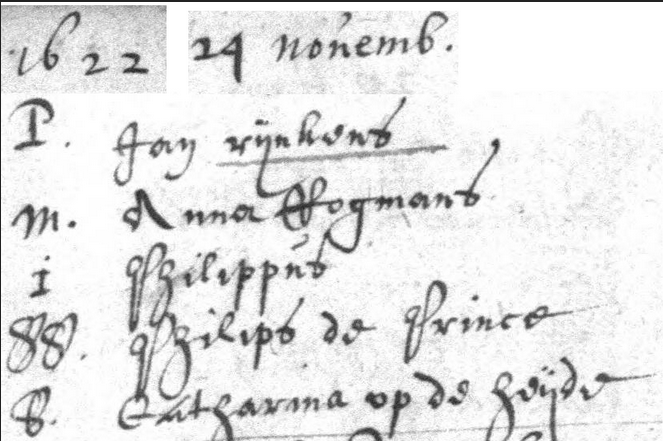 1622 24 novemb.
P. Jan rijnkens
m. Anna Cogmans
i Philippus
SS. Philips de Prince
S. Catharina op de heijde